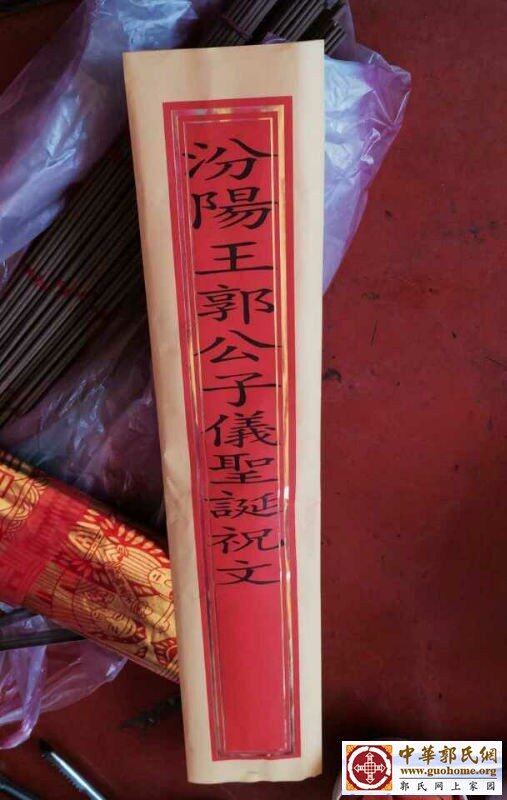 汾陽王郭公子儀聖誕祝文
中華郭氏網
www.guohome.org
郭氏网上家园